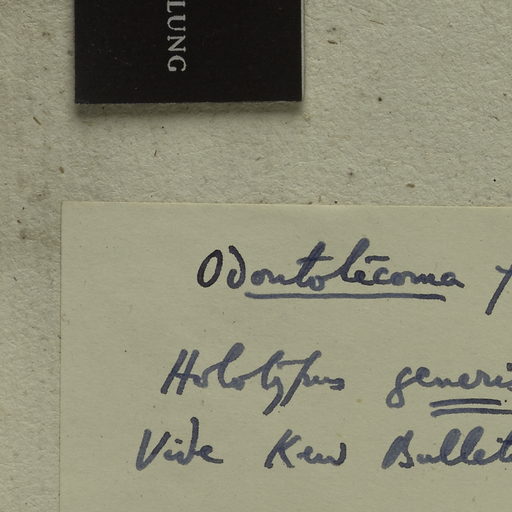 LUNG
Odontotecoma
Holotypus generis
Vide Kew Bullet